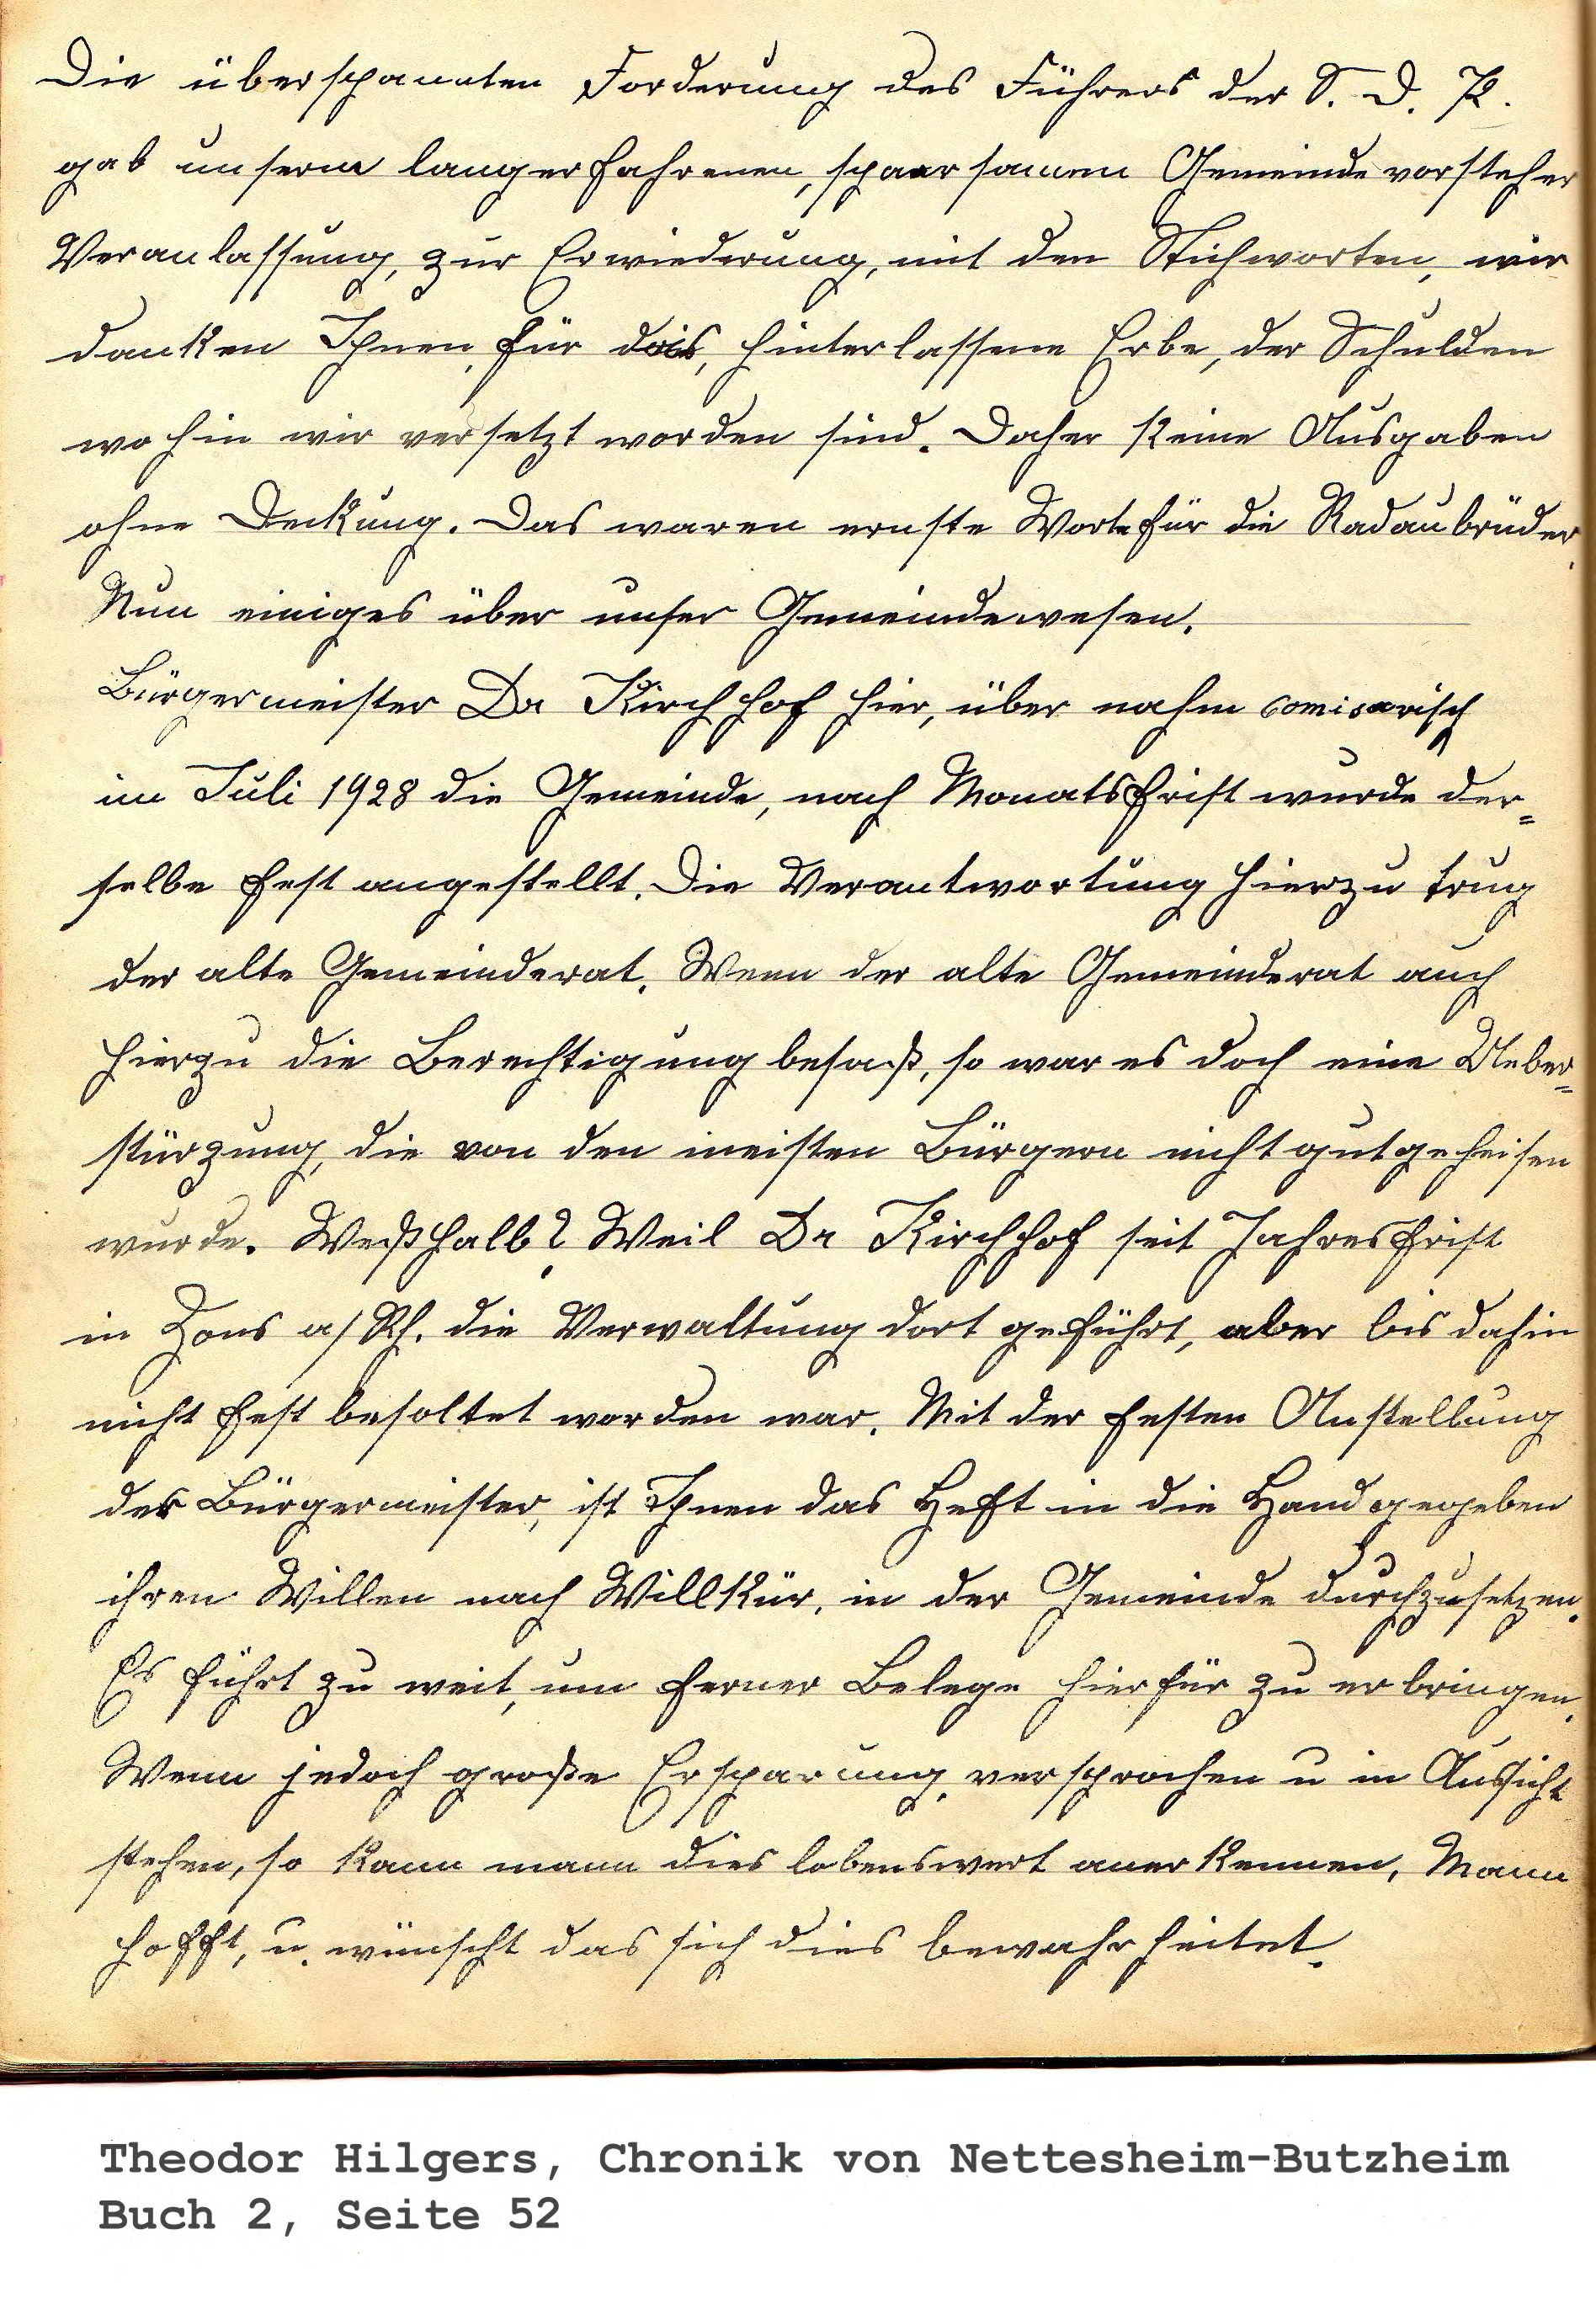 Die überspannten Forderung des Führers der S. D. P.
gab unserm langerfahrenen, sparsamen Gemeindevorsteher
Veranlassung, zur Erwiederung, mit den Stichworten, wir
danken Ihnen, für das, hinterlassene Erbe, der Schulden
wohin wir versetzt worden sind. Daher keine Ausgaben
ohne Deckung. Das waren ernste Worte für die Radaubrüder.
Nun einiges über unser Gemeindewesen.
Bürgermeister Dr Kirchhof hier, über nahm comisarisch
im Juli 1928 die Gemeinde, nach Monatsfrist wurde der=
selbe fest angestellt. Die Verantwortung hierzu trug
der alte Gemeinderat. Wenn der alte Gemeinderat auch
hierzu die Berechtigung besaß, so war es doch eine Ueber=
stürzung, die von den meisten Bürgern nicht gutgeheisen
wurde. Weßhalb? Weil Dr Kirchhof seit Jahresfrist
in Zons a/Rh. die Verwaltung dort geführt, aber bis dahin
nicht fest besoltet worden war. Mit der festen Anstellung
der Bürgermeister, ist Ihnen das Heft in die Hand gegeben
ihren Willen nach Willkür, in der Gemeinde durchzusetzen.
Es führt zu weit, um ferner Belege hierfür zu erbringen.
Wenn jedoch große Ersparung, versprochen u in Aussicht
stehen, so kann mann dies lobenswert anerkennen, Mann
hofft, u. wünscht das sich dies bewahrheitet.
Theodor Hilgers, Chronik von Nettesheim-Butzheim
Buch 2, Seite 52